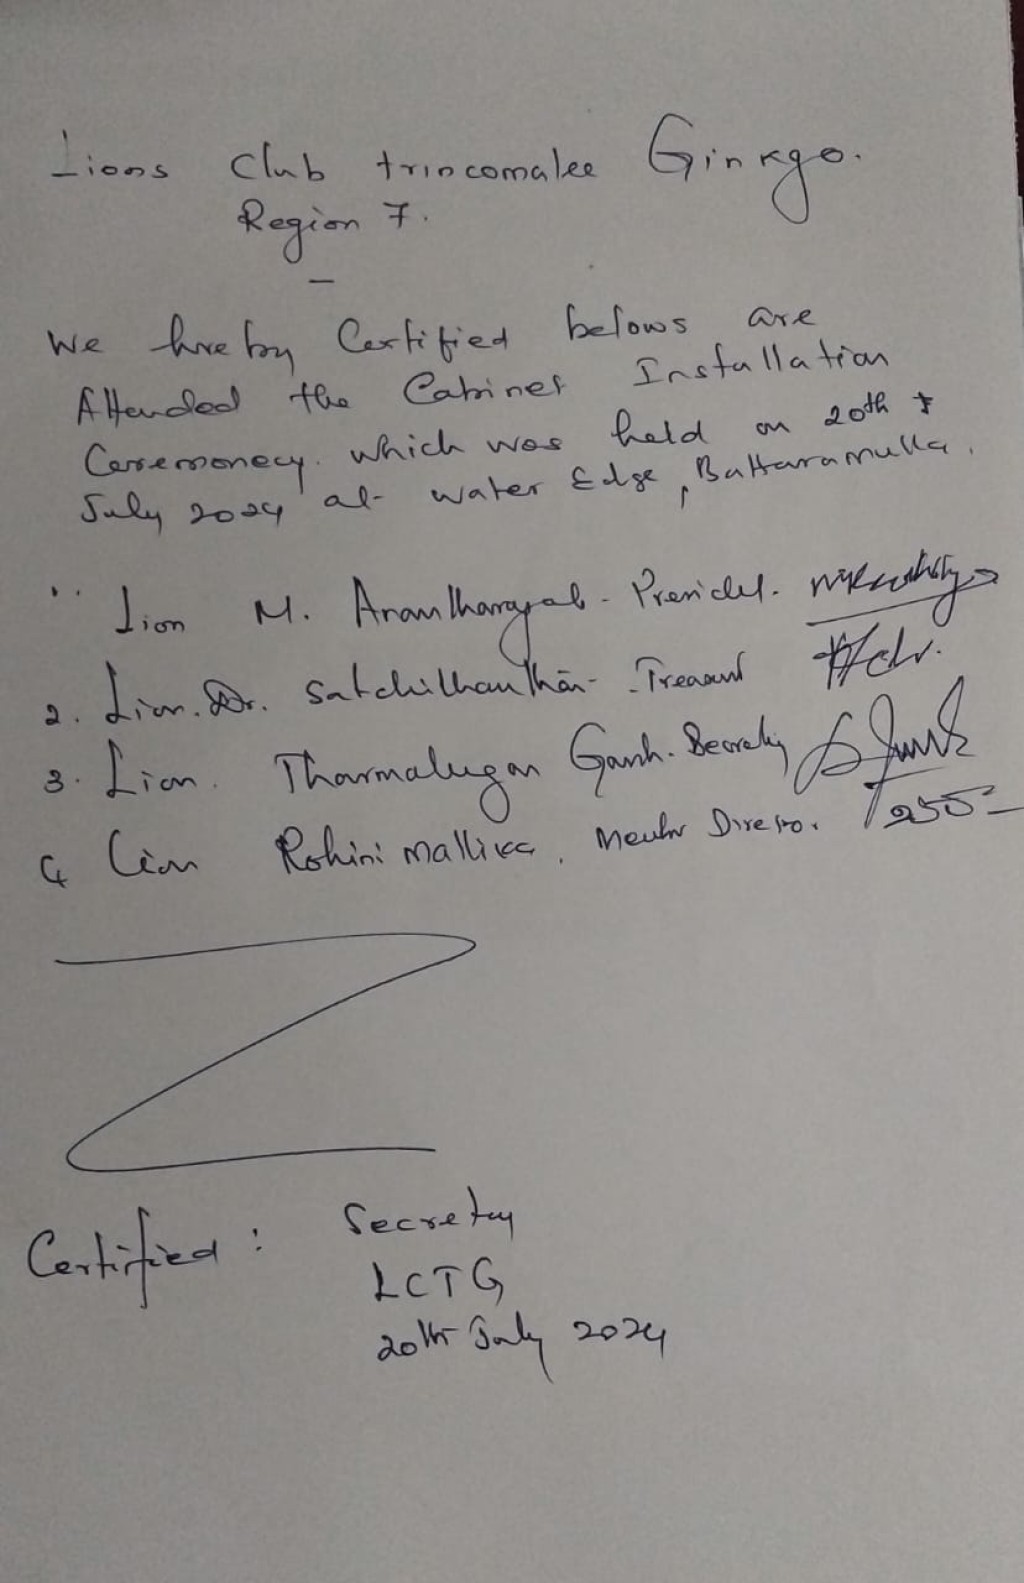 Lions Club trincomalee Ginkgo.
Region 7.
We hreby Certified belows are
Attended the Cabinet Installation
Ceremonecy. which was held on 20th
July 2024 at water Edge, Battaramulla.
Lion M. Anantharajah - President.
2. Lion. Dr. Satchithanthan -
3. Lion. Tharmalugan Ganh. Secretary
4 Lion Rohini Mallika,
Certified : Secretary
LCTG
20th July 2024